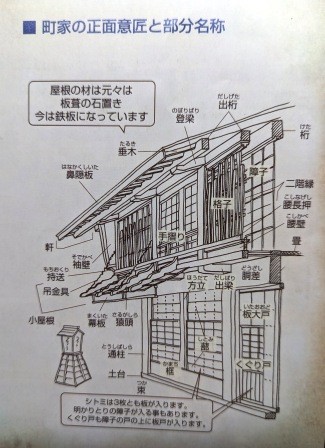 ■ 町家の正面意匠と部分名称
屋根の材は元々は
板葺の石置き
今は鉄板になっています
のぼりばり
登梁
だしげた
出桁
たるき
垂木
けた
桁
はなかくしいた
鼻隠板
障子
格子
二階縁
こしなげし
腰長押
手摺り
こしかべ
腰壁
軒
そでかべ
袖壁
畳
もちおくり
持送
吊金具
ほうだて
方立
だしばり
出梁
どうざし
胴差
小屋根
まくいた
幕板
さるがしら
猿頭
いたおおど
板大戸
しとみ
蔀
とうしばしら
通柱
かまち
框
くぐり戸
土台
つか
束
シトミは3枚とも板が入ります。
明かりとりの障子が入る事もあります。
くぐり戸も障子の戸の上に板戸が入ります。